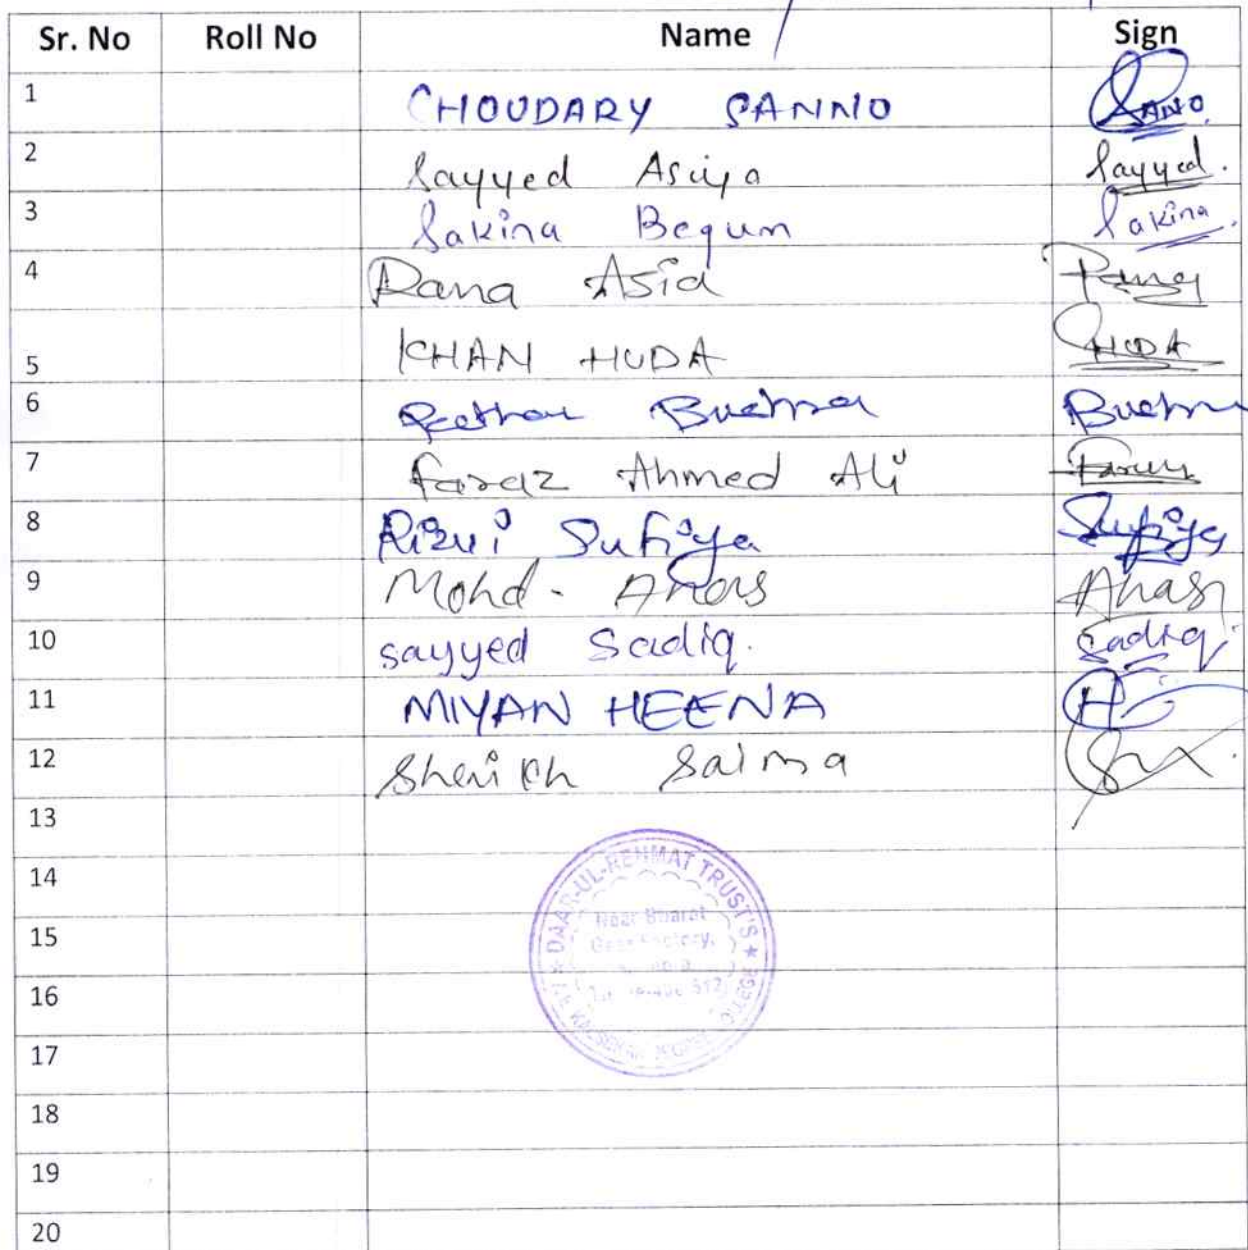 Sr. No Roll No Name Sign
1 CHOUDARY SANNO SANO
2 Sayyed Asiya Sayyed.
3 Sakina Begum Sakina
4 Rana Asia Rana
5 KHAN HUDA HUDA
6 Bushra Bushra
7 Faraz Ahmed Ali Faraz
8 Rizvi Sufiya Sufiya
9 Mohd. Anas Anas
10 sayyed Sadiq. Sadiq
11 MIYAN HEENA H
12 Sheikh Saima
13
14
DAAR-UL-REHMAT TRUST'S
Near Bharat
15
Gear Factory,
16
17
18
19
20